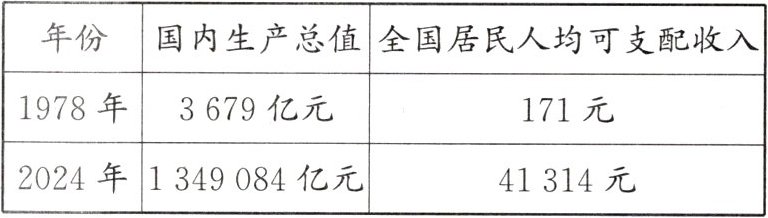 年份 国内生产总值 全国居民人均可支配收入
1978 年 3 679 亿元 171 元
2024 年 1 349 084 亿元 41 314 元